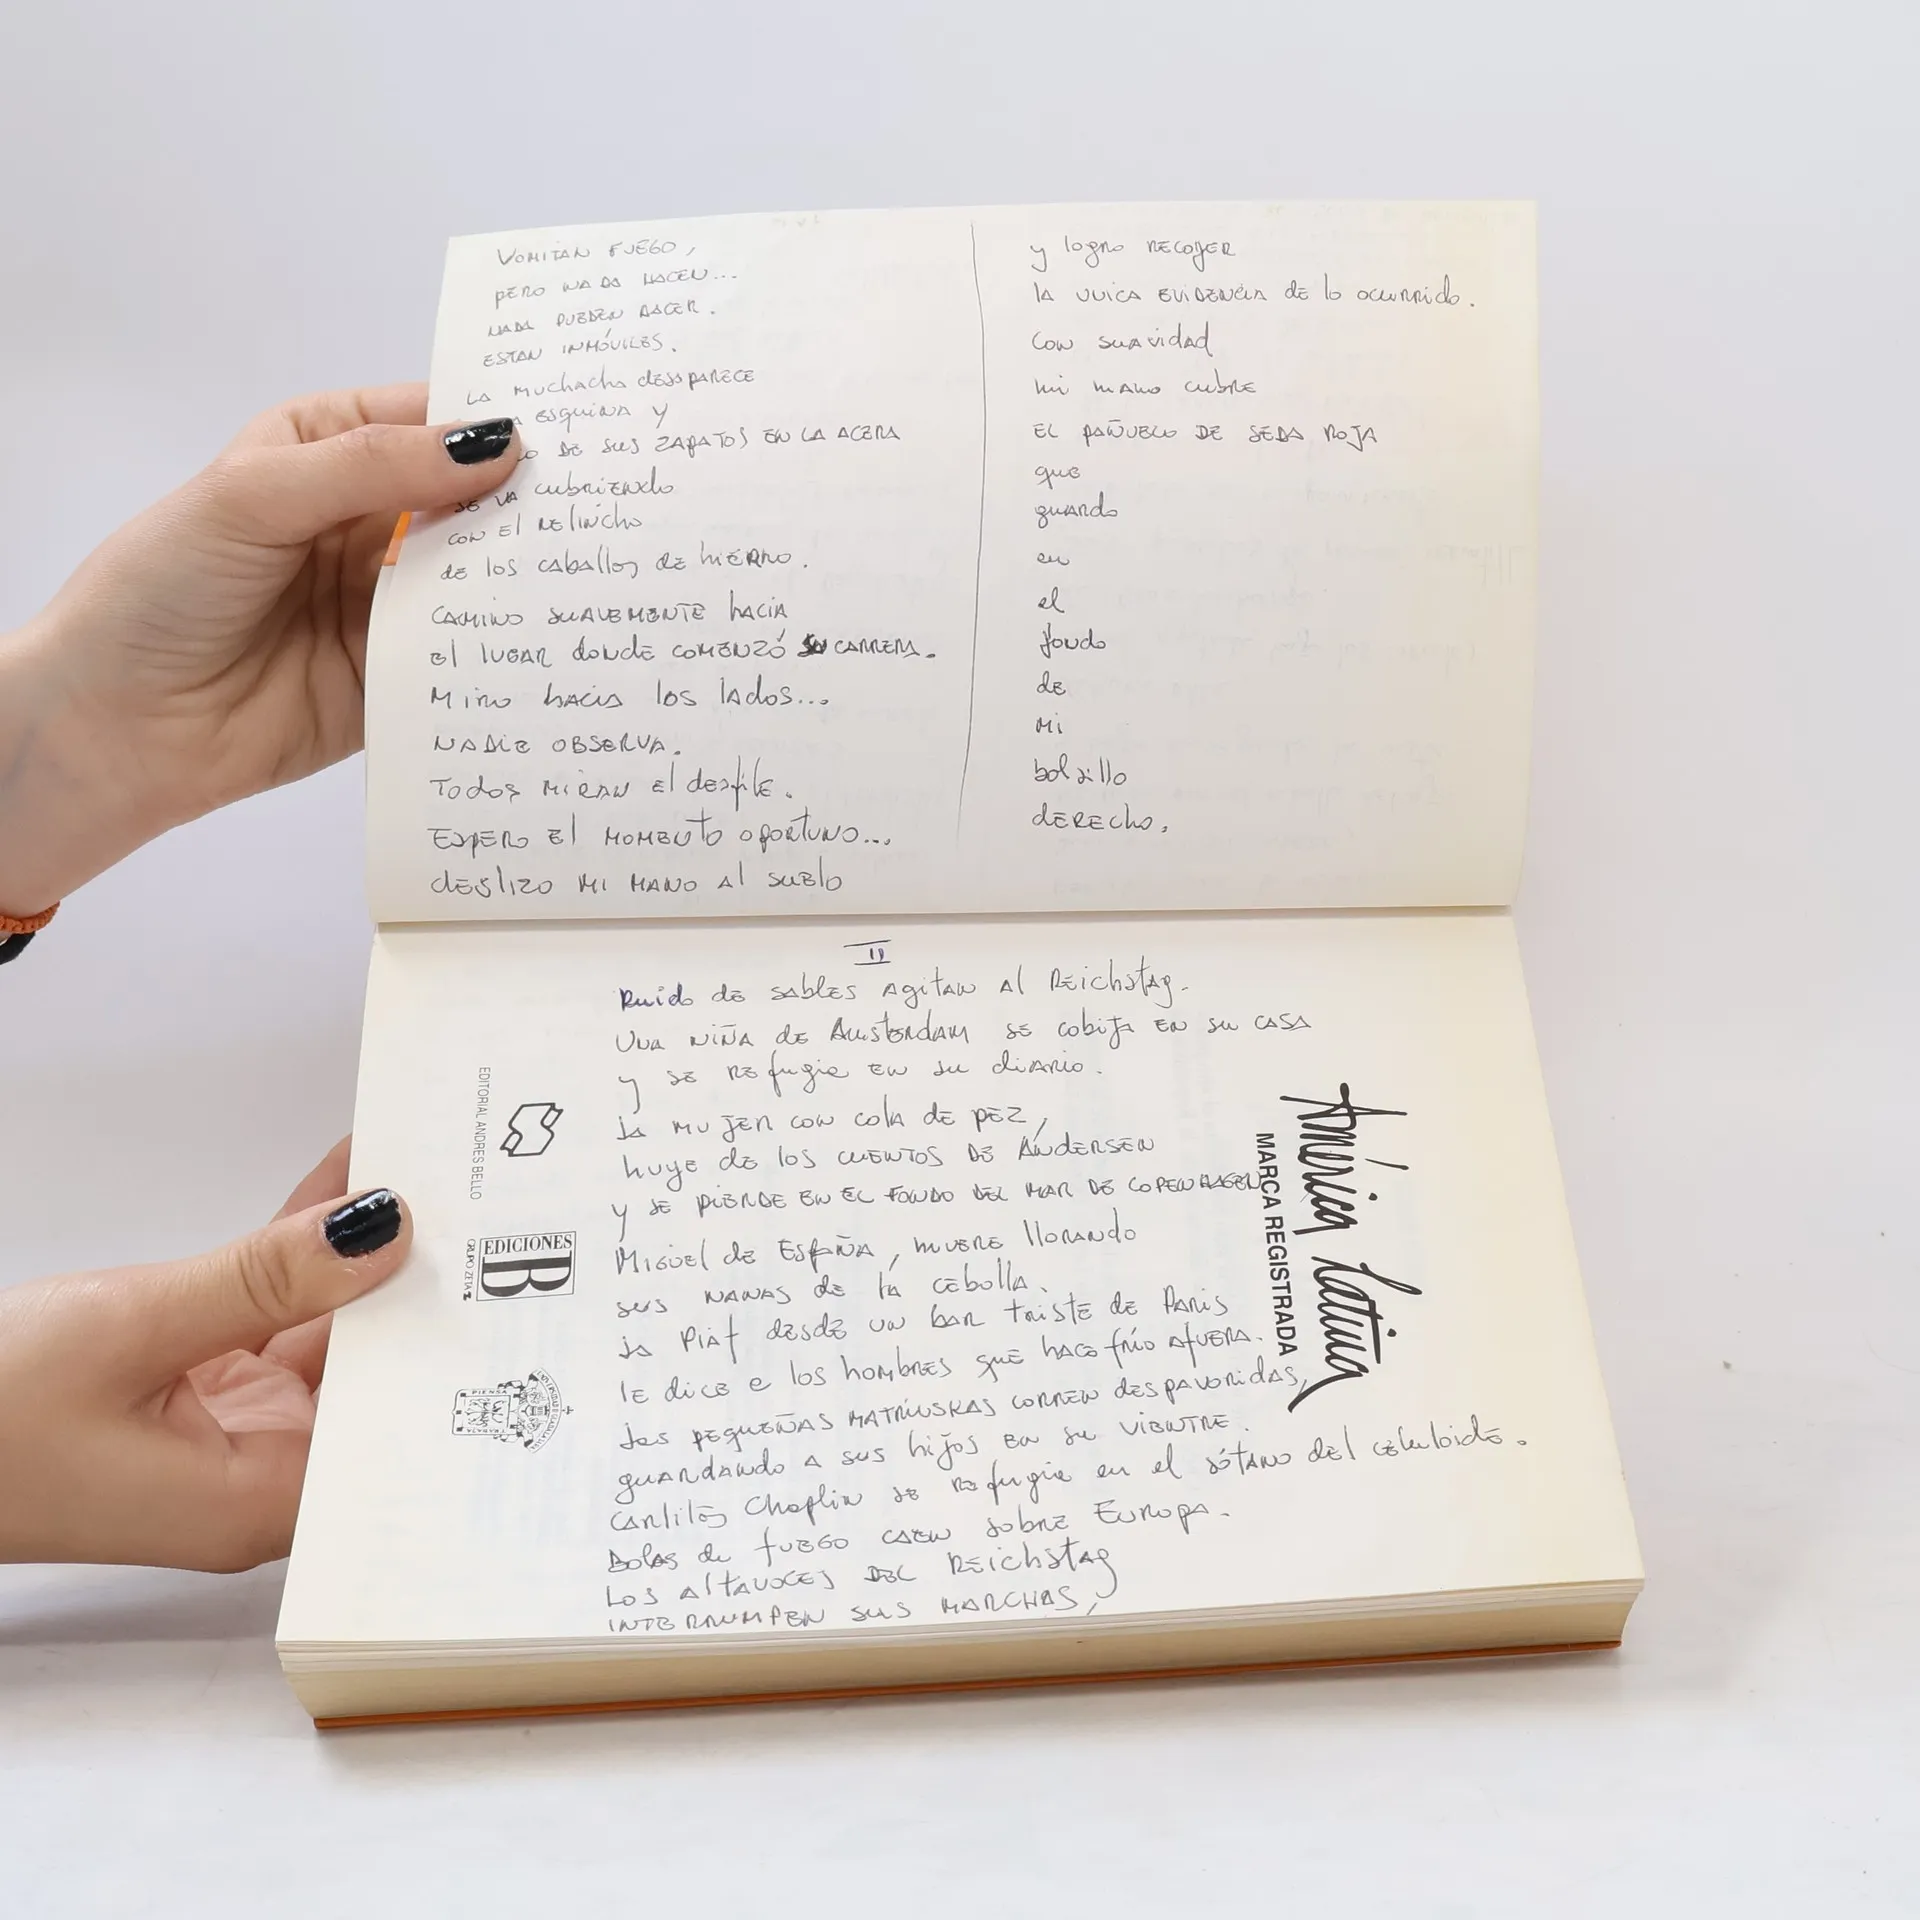 VOMITAN FUEGO,
PERO NADA HACEN...
NADA PUEDEN HACER.
ESTAN INMÓVILES.
LA MUCHACHA DESAPARECE
A ESQUINA Y
O DE SUS ZAPATOS EN LA ACERA
SE VA CUBRIENDO
CON EL RELINCHO
DE LOS CABALLOS DE HIERRO.
CAMINO SUAVEMENTE HACIA
EL LUGAR DONDE COMENZÓ SU CARRERA.
MIRO HACIA LOS LADOS...
NADIE OBSERVA.
TODOS MIRAN El desfile.
ESPERO El MOMENTO OPORTUNO...
DESLIZO MI MANO Al SUELO
y logro RECOJER
la UNICA EVIDENCIA de lo ocurrido.
CON suavidad
mi mano cubre
EL PAÑUELO DE SEDA ROJA
que
guardo
en
el
fondo
de
Mi
bolsillo
derecho.
II
Ruido de sables agitan al Reichstag.
Una niña de Amsterdam se cobija en su casa
y se refugia en su diario.
La mujer con cola de pez,
huye de los cuentos de Andersen
y se pierde en el fondo del mar de Copenhagen
Miguel de España, muere llorando
sus nanas de la cebolla.
La Piaf desde un bar triste de Paris
le dice a los hombres que hace frío afuera.
Las pequeñas matriuskas corren despavoridas,
guardando a sus hijos en su vientre.
Carlitos Chaplin se refugia en el sótano del celuloide.
Bolas de fuego caen sobre Europa.
Los altavoces del Reichstag
interrumpen sus marchas,
América Latina
MARCA REGISTRADA
EDITORIAL ANDRES BELLO
EDICIONES
B
GRUPO ZETA
PIENSA
TRABAJA